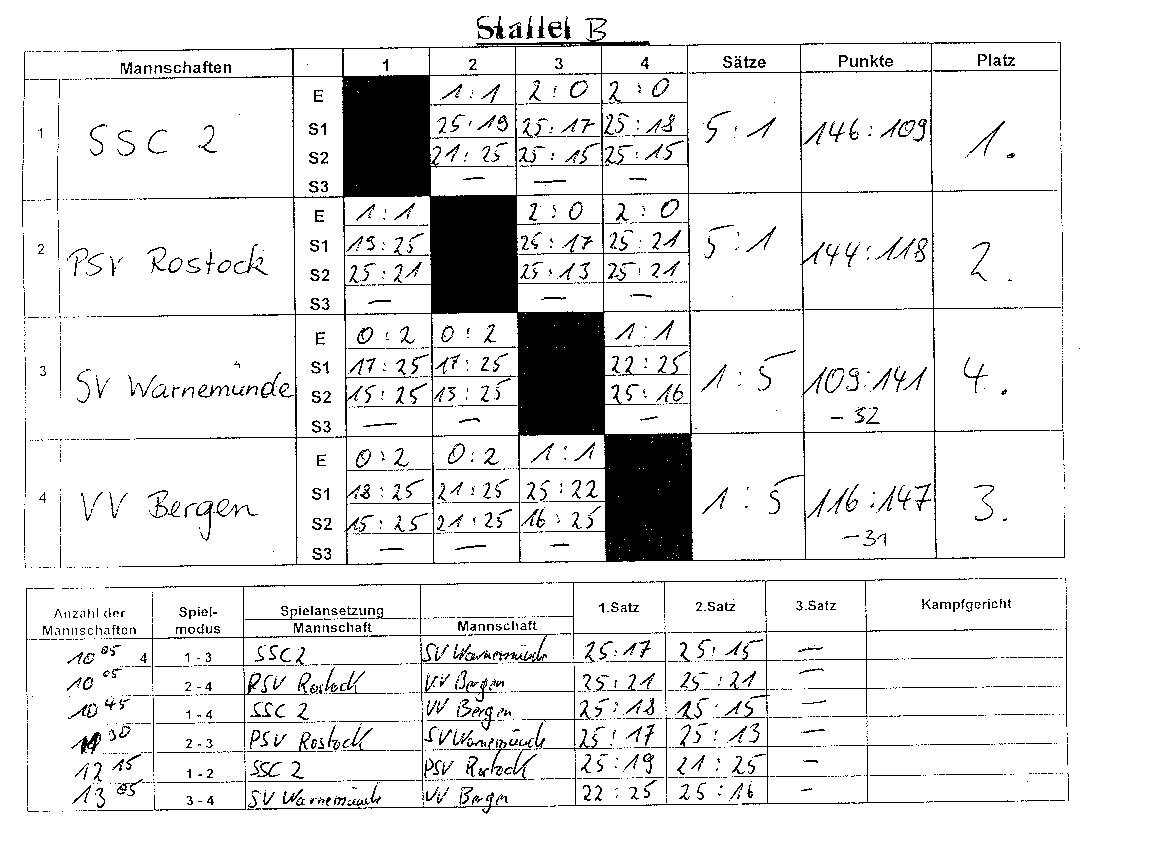 Staffel B
Mannschaften 1 2 3 4 Sätze Punkte Platz
E 1:1 2:0 2:0
1 SSC 2 S1 25:19 25:17 25:18 5:1 146:109 1.
S2 21:25 25:15 25:15
S3 — — —
E 1:1 2:0 2:0
2 PSV Rostock S1 19:25 25:17 25:21 5:1 144:118 2.
S2 25:21 25:13 25:21
S3 — — —
E 0:2 0:2 1:1
3 SV Warnemünde S1 17:25 17:25 22:25 1:5 109:141 4.
S2 15:25 13:25 25:16
S3 — — — -32
E 0:2 0:2 1:1
4 VV Bergen S1 18:25 21:25 25:22 1:5 116:147 3.
S2 15:25 21:25 16:25
S3 — — — -31
Anzahl der Mannschaften Spiel-modus Spielansetzung Mannschaft Mannschaft 1.Satz 2.Satz 3.Satz Kampfgericht
10 05 4 1 - 3 SSC 2 SV Warnemünde 25:17 25:15 —
10 05 2 - 4 PSV Rostock VV Bergen 25:21 25:21 —
10 45 1 - 4 SSC 2 VV Bergen 25:18 25:15 —
11 30 2 - 3 PSV Rostock SV Warnemünde 25:17 25:13 —
12 15 1 - 2 SSC 2 PSV Rostock 25:19 21:25 —
13 05 3 - 4 SV Warnemünde VV Bergen 22:25 25:16 —